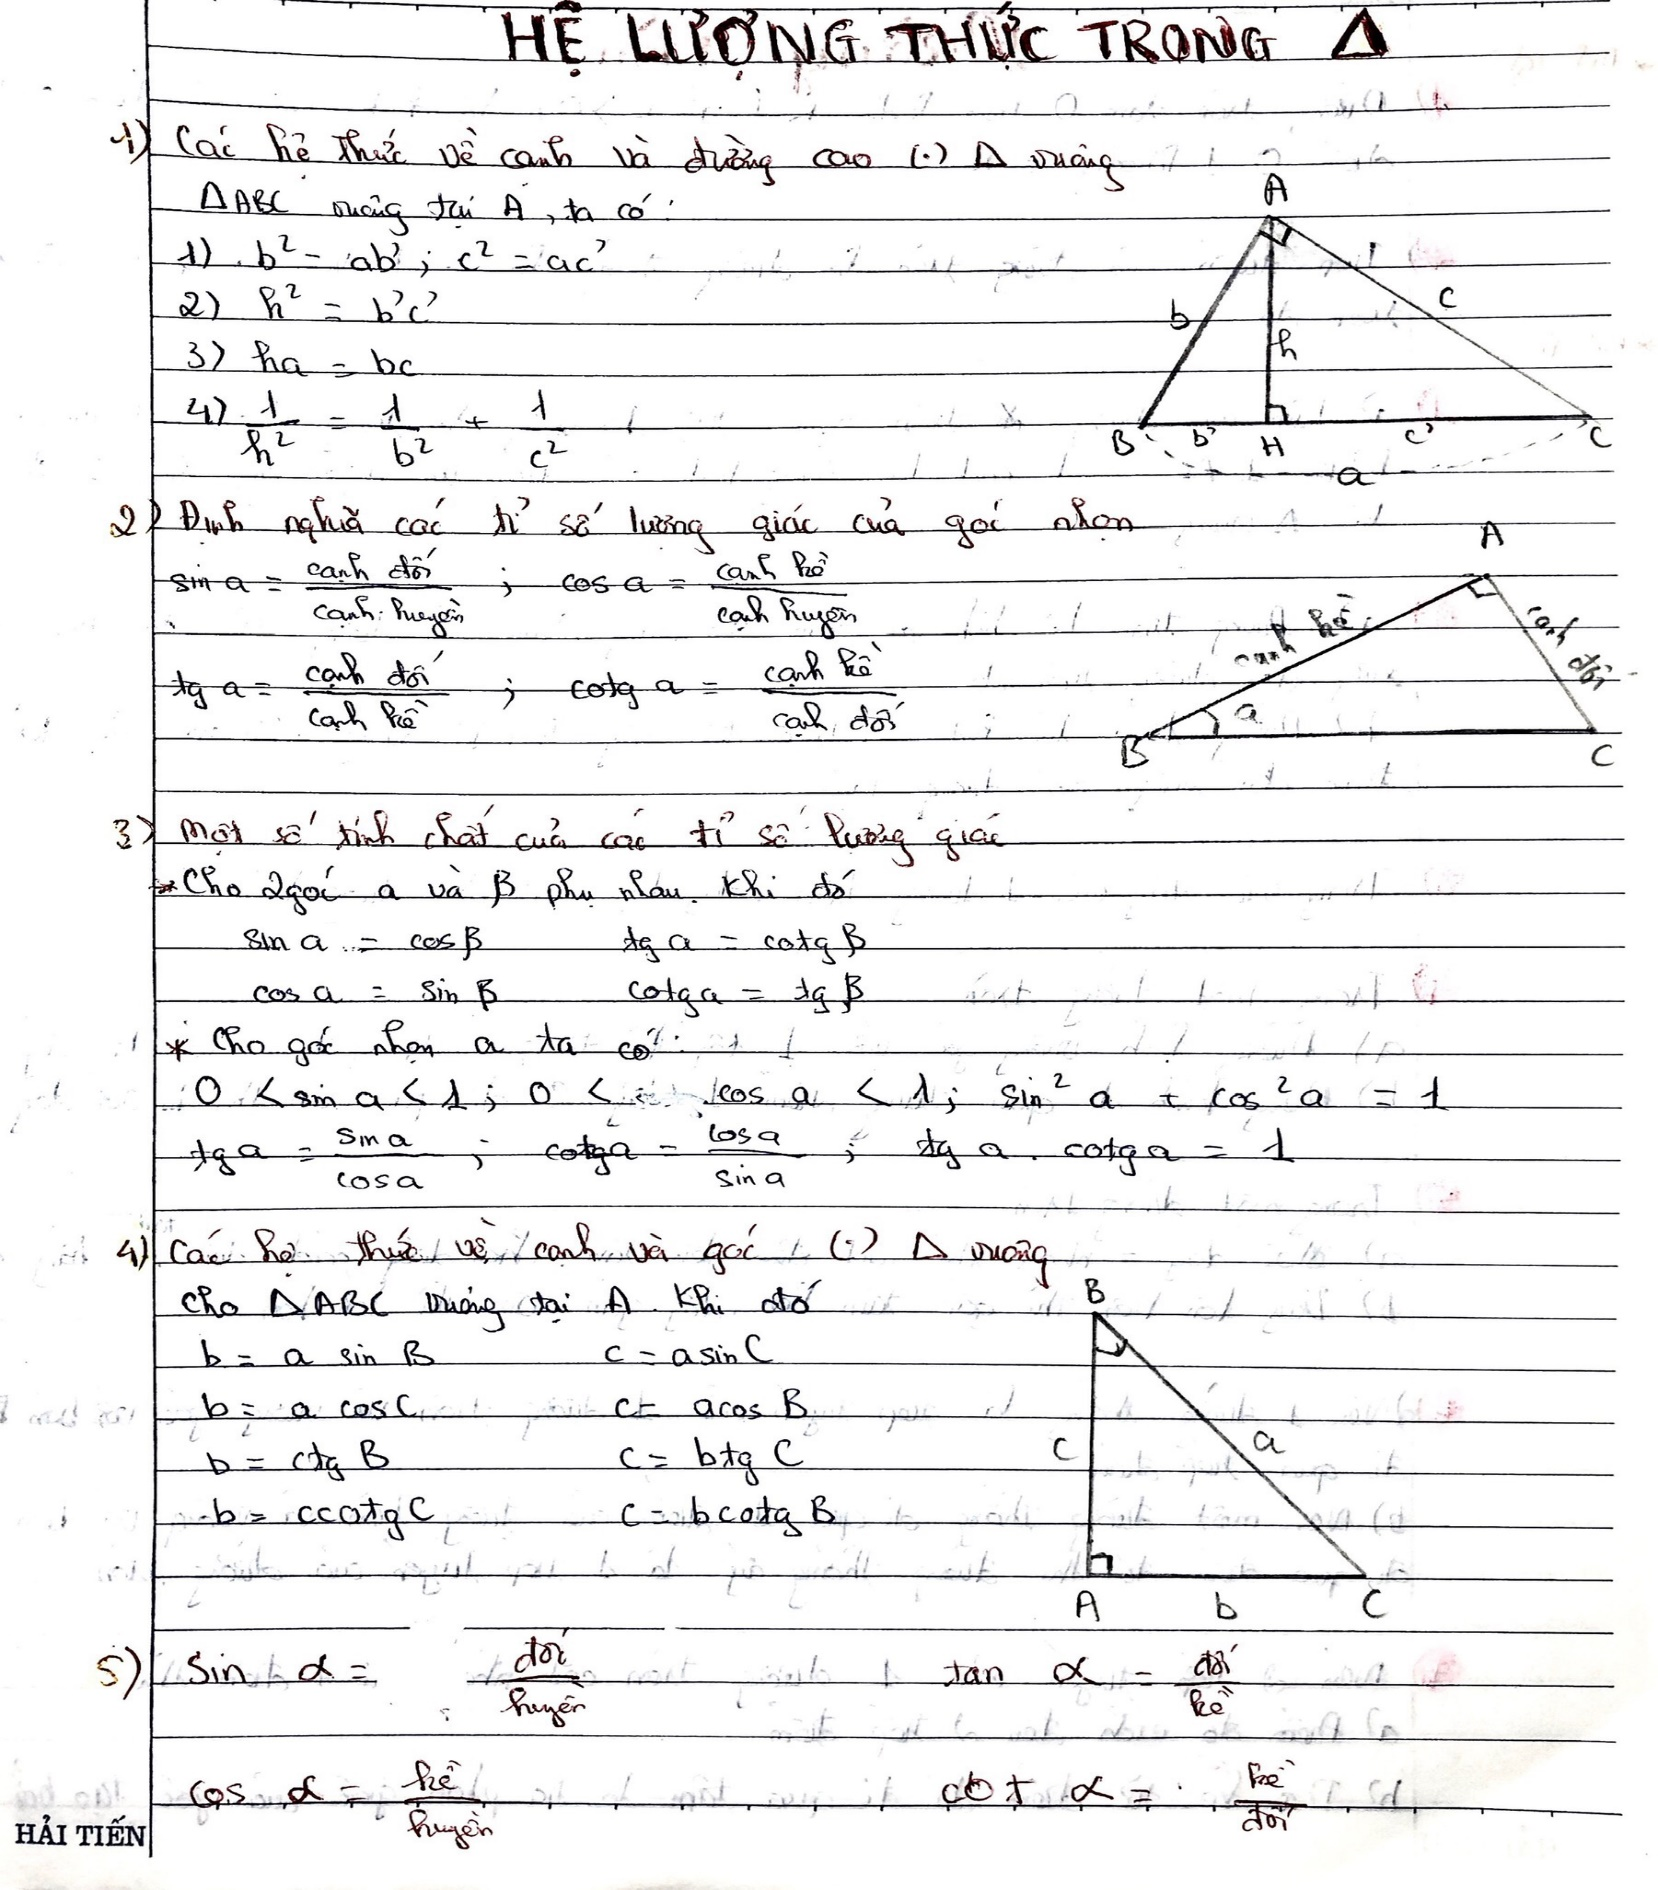 HỆ LƯỢNG THỨC TRONG Δ
1) Các hệ thức về cạnh và đường cao (.) Δ vuông
ΔABC vuông tại A, ta có:
1) b² = ab'; c² = ac'
2) h² = b'c'
3) ha = bc
4) 1/h² = 1/b² + 1/c²
A
b
h
c
B b' H c' C
a
2) Định nghĩa các tỉ số lượng giác của góc nhọn
sin a = cạnh đối/cạnh huyền ; cos a = cạnh kề/cạnh huyền
tg a = cạnh đối/cạnh kề ; cotg a = cạnh kề/cạnh đối
A
cạnh kề
cạnh đối
a
B
C
3) Một số tính chất của các tỉ số lượng giác
* Cho 2 góc a và β phụ nhau. Khi đó
sin a = cos β tg a = cotg β
cos a = sin β cotg a = tg β
* Cho góc nhọn a ta có:
0 < sin a < 1; 0 < cos a < 1; sin² a + cos² a = 1
tg a = sin a/cos a ; cotg a = cos a/sin a ; tg a . cotg a = 1
4) Các hệ thức về cạnh và góc (.) Δ vuông
Cho ΔABC vuông tại A. Khi đó
b = a sin B c = a sin C
b = a cos C c = a cos B
b = ctg B c = btg C
b = ccotg C c = bcotg B
B
c
a
A b C
5) Sin α = đối/huyền tan α = đối/kề
cos α = kề/huyền cot α = kề/đối
HẢI TIẾN